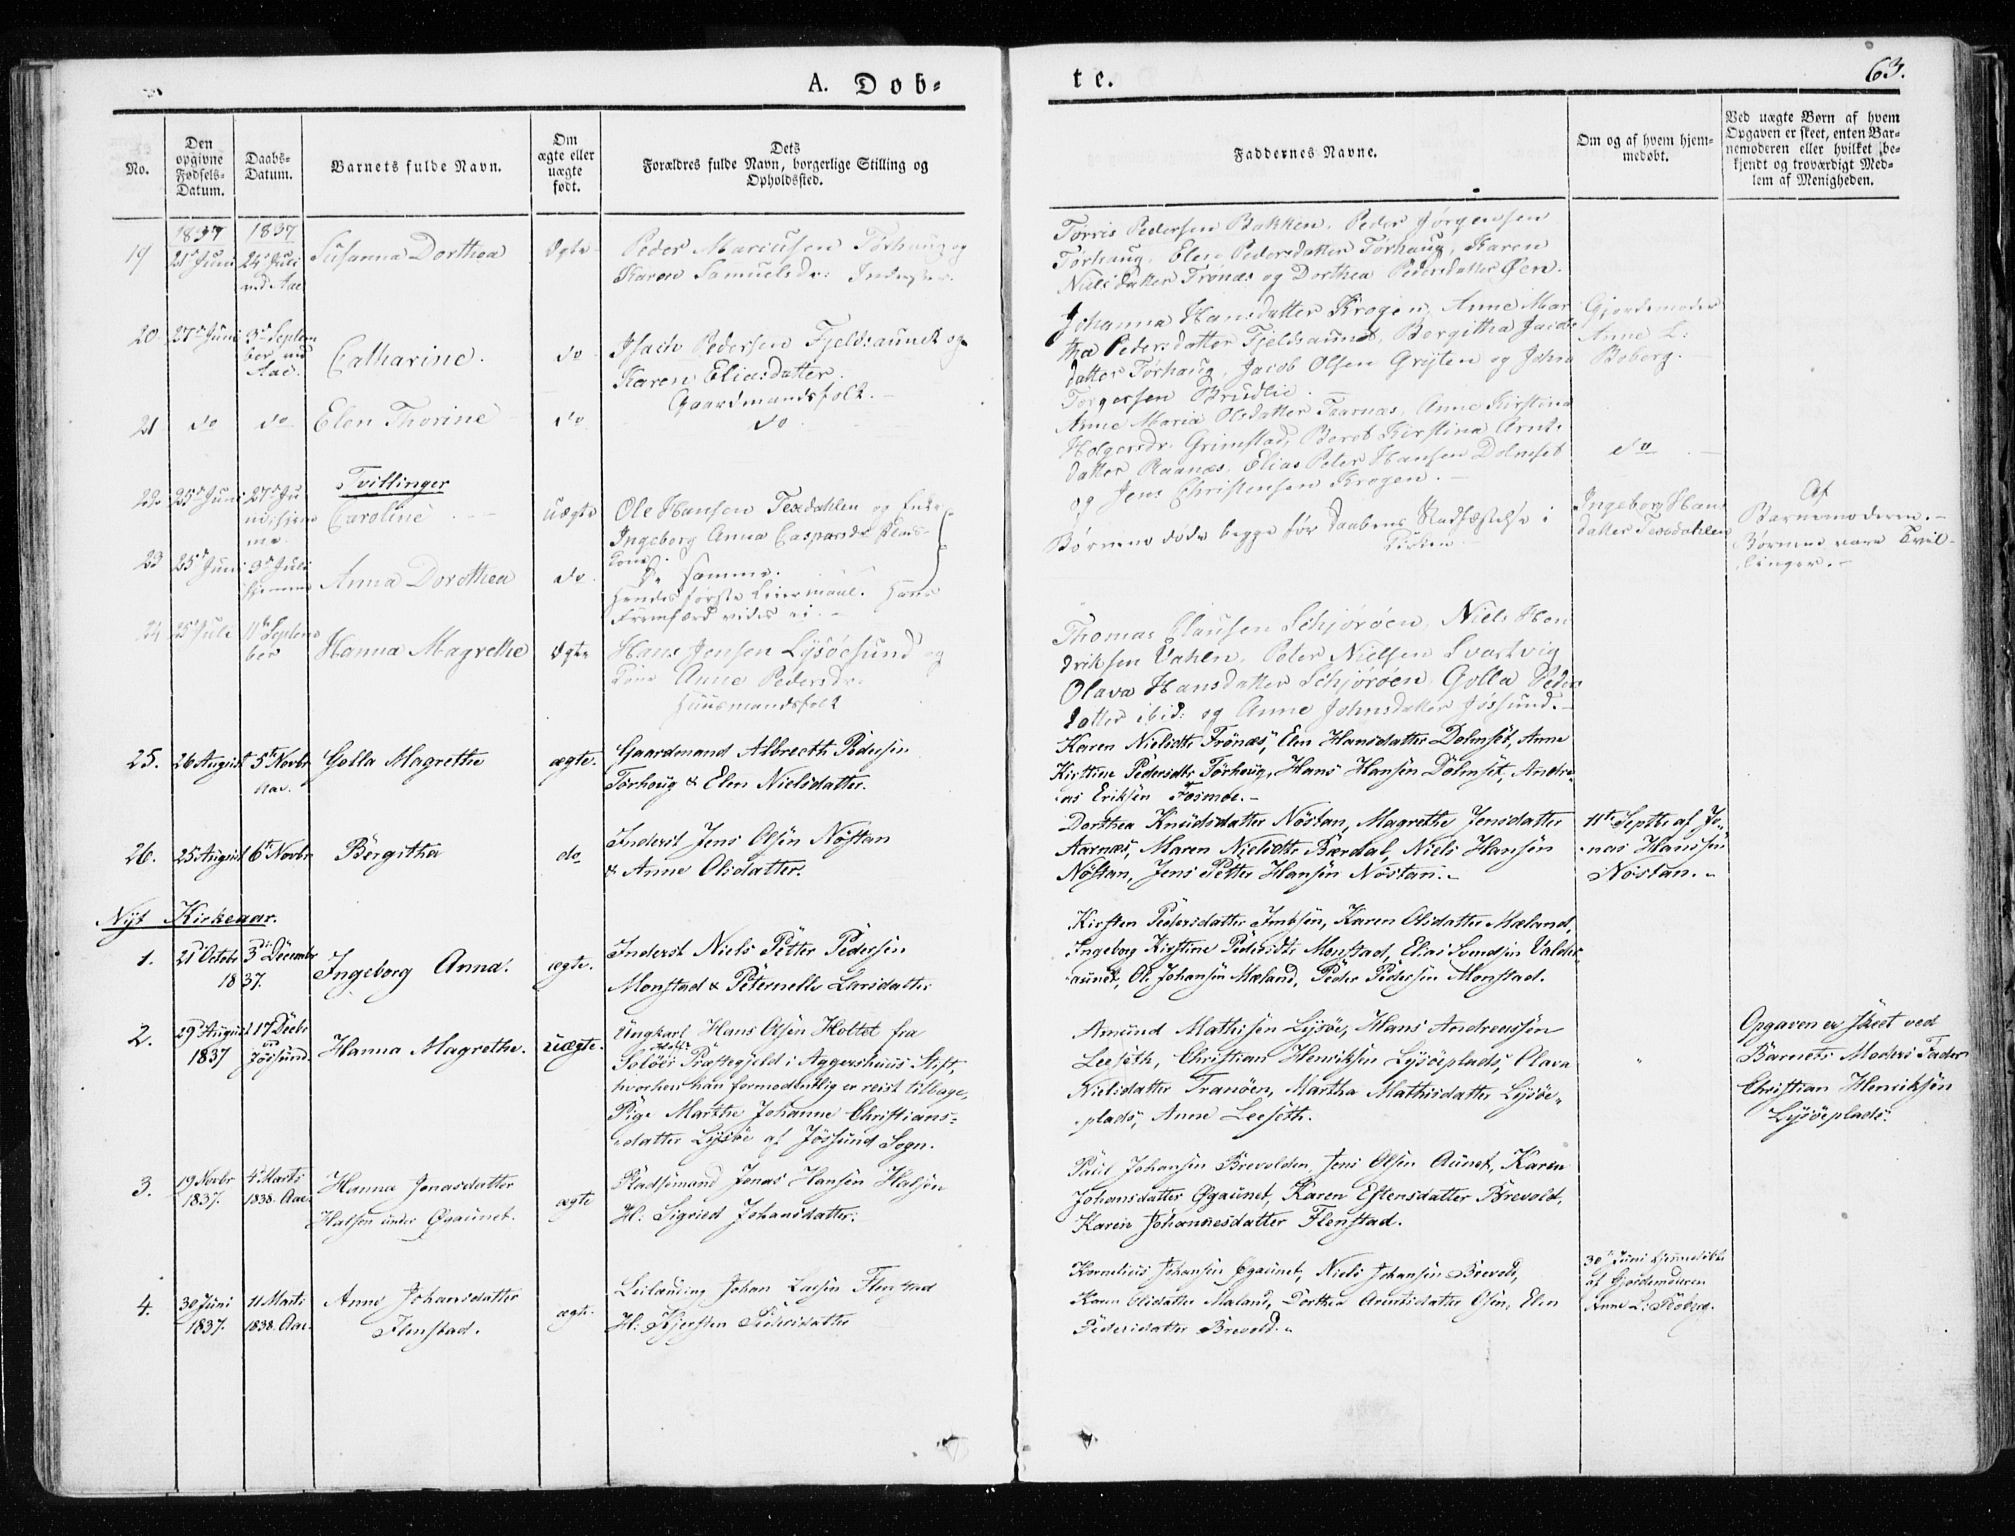 A. Døb-
te.
63.
No.
Den opgivne Fødsels-Datum.
Daabs-Datum.
Barnets fulde Navn.
Om ægte eller uægte født.
Dets Forældres fulde Navn, borgerlige Stilling og Opholdssted.
Faddernes Navne.
Om og af hvem hjemmedøbt.
Ved uægte Børn af hvem Opgaven er skeet, enten Barnemoderen eller hvilket bekjendt og troværdigt Medlem af Menigheden.
1837
1837
19
21 Juni
24 Juli
ved Aae
Susanna Dorthea
ægte
Peder Mariusen Torhaug og
Karen Samuelsdr:
Tørris Pedersen Bakken, Peder Jørgensen
Torhaug, Elen Pedersdatter Torhaug, Karen
Nielsdatter Trønæs og Dorthea Pedersdatter Øen.
20
27de Juni
3de Septem
ber ved
Aae.
Catharine.
do
Isach Pedersen Fjeldsaunet og
Karen Eliasdatter.
Gaardmandsfolk.
Johanna Hansdatter Krogen, Anne Mar
tha Pedersdatter Fjeldsaunet, Bergitha Jacobs
datter Torhaug, Jacob Olsen Gryten og Johan
Torgersen Brudlie
Gjordemoder
Anne L:
Boberg.
21
do
do
Elen Thorine
do
do
Anne Maria Olsdatter Taarnæs, Anne Kirstina
Holgersdr: Grimstad, Beret Kirstina Arnt-
datter Raanæs, Elias Peter Hansen Dolmset
og Jens Christensen Krogen.
do
Tvillinger
22
25de Juni
27de Ju
ni hjem
me.
Caroline
uægte
Ole Hansen Texdahlen og Enke
Ingeborg Anna Caspersdr
Børnene døde begge før Daabens Stadfæstelse i
Kirken
Ingeborg Hans
datter Texdahlen
Af
Barnemoderen.
Børnene vare Tvil-
linger.
23
25de Juni
3de Juli
hjemme
Anna Dorothea
do
De samme.
Hendes første Leiermaal. Hans
Fremfærd vides ei.
24
25 Juli
11te Septem
ber
Hanna Magrethe
ægte
Hans Jensen Lysøesund og
Kone Anne Pedersdr:
Huusmandsfolk
Thomas Clausen Schjørøen, Niels Hen
driksen Vahln, Peter Nielsen Svartvig
Olava Hansdatter Schjørøen, Golla Peders
datter ibid: og Anne Johnsdatter Jøssund.
25.
26 August
5te Novbr
Aae.
Golla Magrethe
ægte.
Gaardmand Albrecth Pedersen
Torhoug & Elen Nielsdatter.
Karen Nielsdtr Trönæs, Elen Hansdatter Dolmset, Anne
Kirstine Pedersdtr Torhoug, Hans Hansen Dolmset, Andre-
-as Eriksen Fosmoe.
26.
25 August
6te Novbr
Bergitha
do
Inderst Jens Olsen Nöstan
& Anne Olsdatter.
Dorthea Knudsdatter Nöstan, Magrethe Jensdatter
Aarnæs, Maren Nielsdtr Bærdal, Niels Hansen
Nöstan, Jens Petter Hansen Nöstan.
11te Septbr af Jo-
-nas Hanssen
Nöstan.
Nyt Kirkeaar.
1.
21 Octobr
3die Decembr
1837.
Ingeborg Anna.
ægte.
Inderst Niels Petter Pedersen
Monstad & Peternelle Larsdatter
Kirsten Pedersdatter Imbsen, Karen Olsdatter Mæland,
Ingeborg Kirstine Pedersdtr Monstad, Elias Svendsen Valders
aunet, Ole Johansen Mæland, Peder Pedersen Monstad.
2.
29 August
1837
17 Decbr
ved
Jøssund.
Hanna Magrethe.
uægte.
Ungkarl Hans Olsen Holtet fra
Soløer Præstegjeld i Aggershuus Stift,
hvorhen han formodentlig er reist tilbage,
Pige Marthe Johanne Christians-
-datter Lysøe af Jössund Sogn.
Amund Mathisen Lysøe, Hans Andreassen
Leeseth, Christian Henriksen Lysøeplads, Olava
Nielsdatter Tranöen, Martha Mathisdatter Lysøe-
-plads, Anne Leeseth.
Opgaven er skeet ved
Barnets Moders Fader
Christian Henriksen
Lysöeplads.
3.
19 Novbr
1837.
4 Marts
1838. Aae.
Hanna Jonasdatter
Halsen under Øgaunet.
ægte
Pladsemand Jonas Hansen Halsen
H: Sigried Johansdatter.
Paul Johansen Brevolden, Jens Olsen Aunet, Karen
Johansdatter Øgaunet, Karen Estensdatter Brevold,
Karen Johannesdatter Flenstad.
4.
30 Juni
1837.
11 Marts
1838. Aae.
Anne Johansdatter
Flenstad.
ægte.
Leilending Johan Larsen Flenstad
H: Kjersten Pedersdatter
Kornelius Johansen Øgaunet, Niels Johansen Brevold,
Karen Olsdatter Mæland, Dorthea Arentsdatter Olsen, Elen
Pedersdatter Brevold.
30te Juni hjemmedöbt
af Gjordemoderen
Anne L: Boberg.